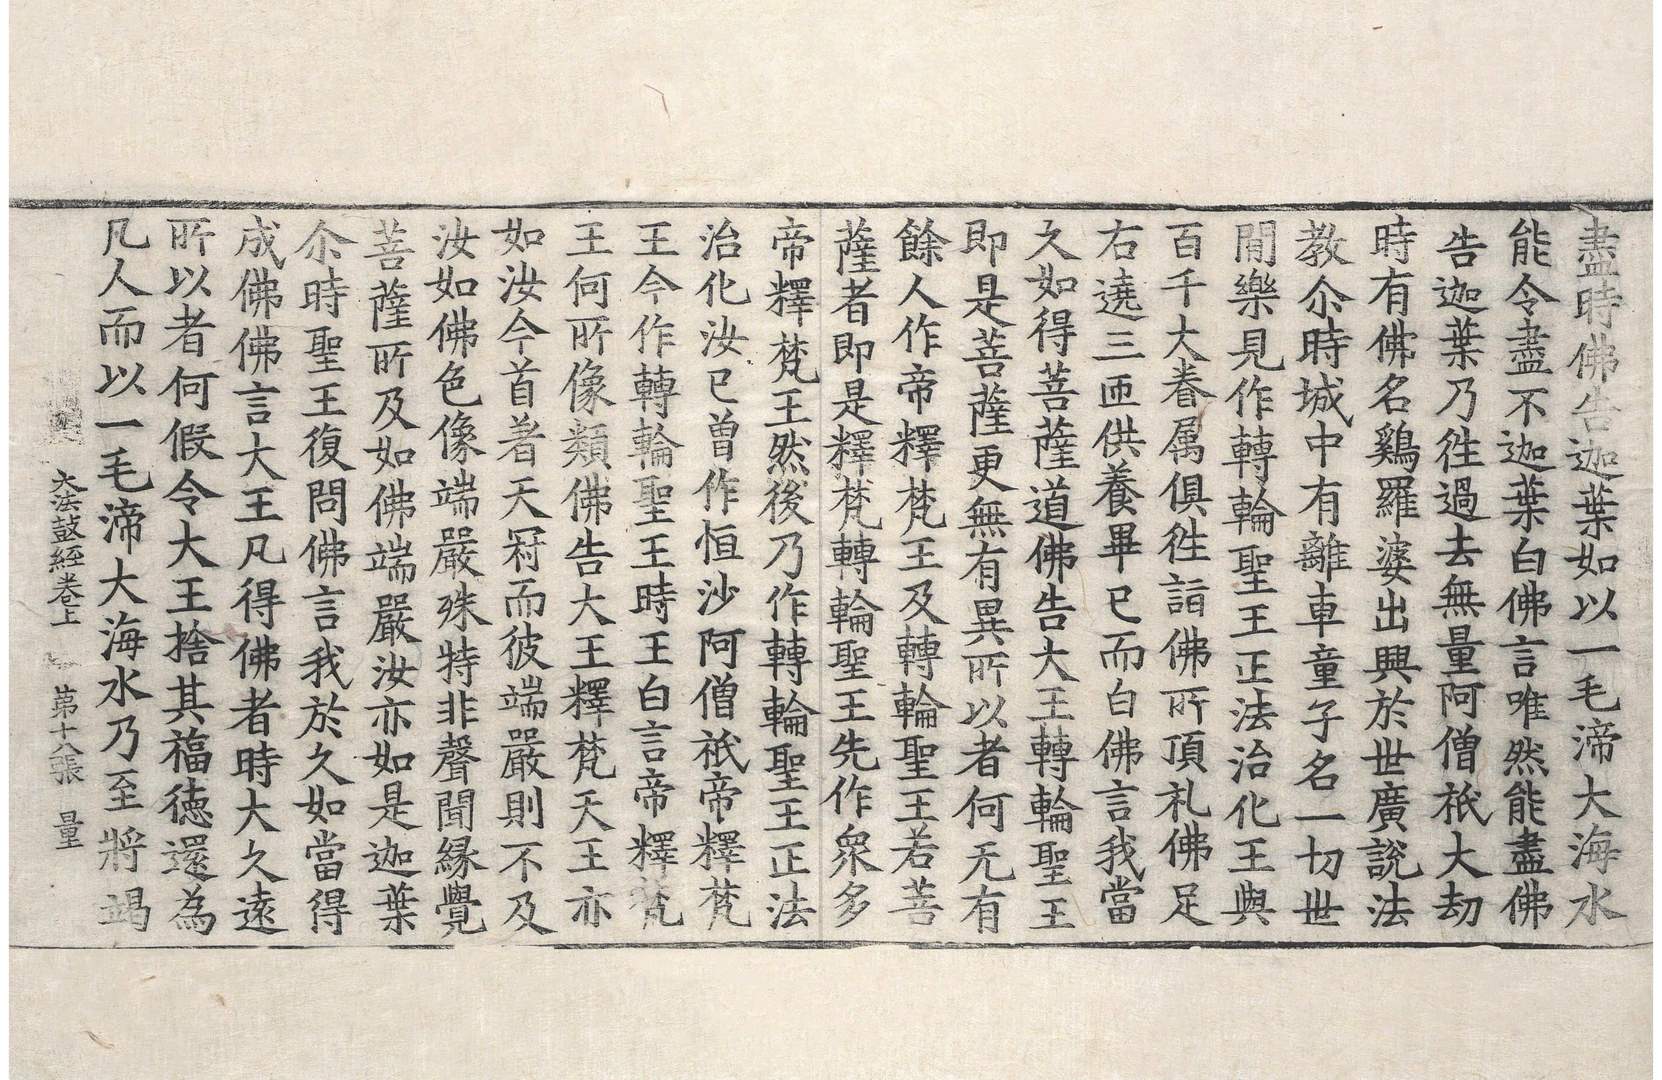 盡時佛告迦葉如以一毛渧大海水
能令盡不迦葉白佛言唯然能盡佛
告迦葉乃徃過去無量阿僧祇大劫
時有佛名鷄羅婆出興於世廣說法
教尒時城中有離車童子名一切世
閒樂見作轉輪聖王正法治化王與
百千大眷属俱徃詣佛所頂礼佛足
右遶三匝供養畢已而白佛言我當
久如得菩薩道佛告大王轉輪聖王
即是菩薩更無有異所以者何无有
餘人作帝釋梵王及轉輪聖王若菩
薩者即是釋梵轉輪聖王先作衆多
帝釋梵王然後乃作轉輪聖王正法
治化汝已曽作恒沙阿僧祇帝釋梵
王今作轉輪聖王時王白言帝釋梵
王何所像類佛告大王釋梵天王亦
如汝今首著天冠而彼端嚴則不及
汝如佛色像端嚴殊特非聲聞緣覺
菩薩所及如佛端嚴汝亦如是迦葉
尒時聖王復問佛言我於久如當得
成佛佛言大王凡得佛者時大久遠
所以者何假令大王捨其福德還為
凡人而以一毛渧大海水乃至將竭
大法鼓經卷上 第十八張 量